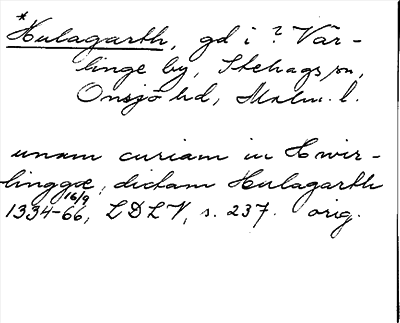 *Hulagarth, gd i ? Vär-
linge by, Stehags sn,
Onsjö hd, Malm. l.
unam curiam in Hwir-
linggæ, dictam Hulagarth
1334-66 16/9, LDLV, s. 237. orig.